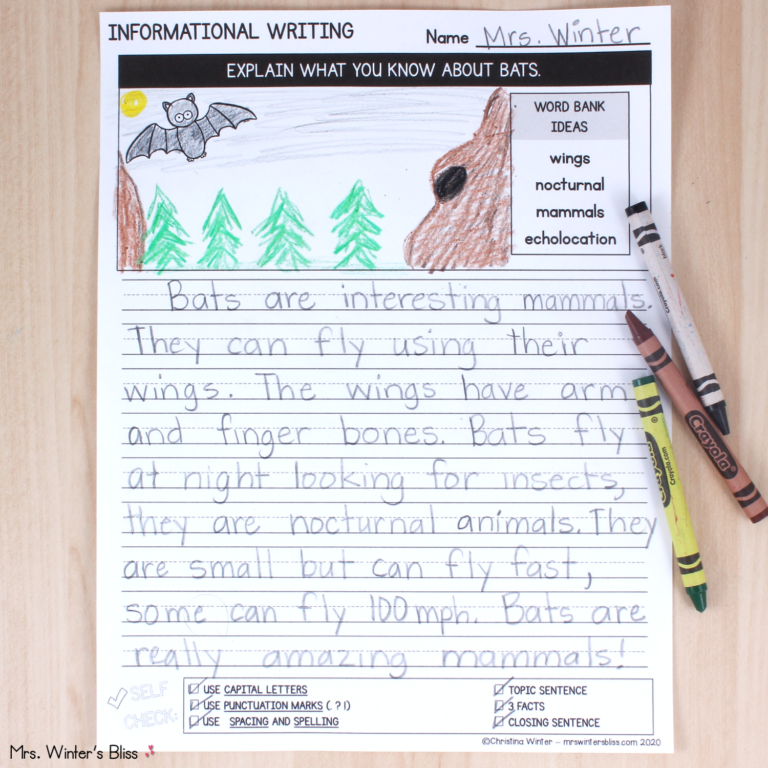 INFORMATIONAL WRITING
Name Mrs. Winter
EXPLAIN WHAT YOU KNOW ABOUT BATS.
WORD BANK
IDEAS
wings
nocturnal
mammals
echolocation
Bats are interesting mammals.
They can fly using their
wings. The wings have arm
and finger bones. Bats fly
at night looking for insects,
they are nocturnal animals. They
are small but can fly fast,
some can fly 100mph. Bats are
really amazing mammals!
SELF
CHECK:
USE CAPITAL LETTERS
USE PUNCTUATION MARKS (. ? !)
USE SPACING AND SPELLING
TOPIC SENTENCE
3 FACTS
CLOSING SENTENCE
©Christina Winter – mrswintersbliss.com 2020
Mrs. Winter's Bliss
black
Crayola.com
Crayola
Crayola.com